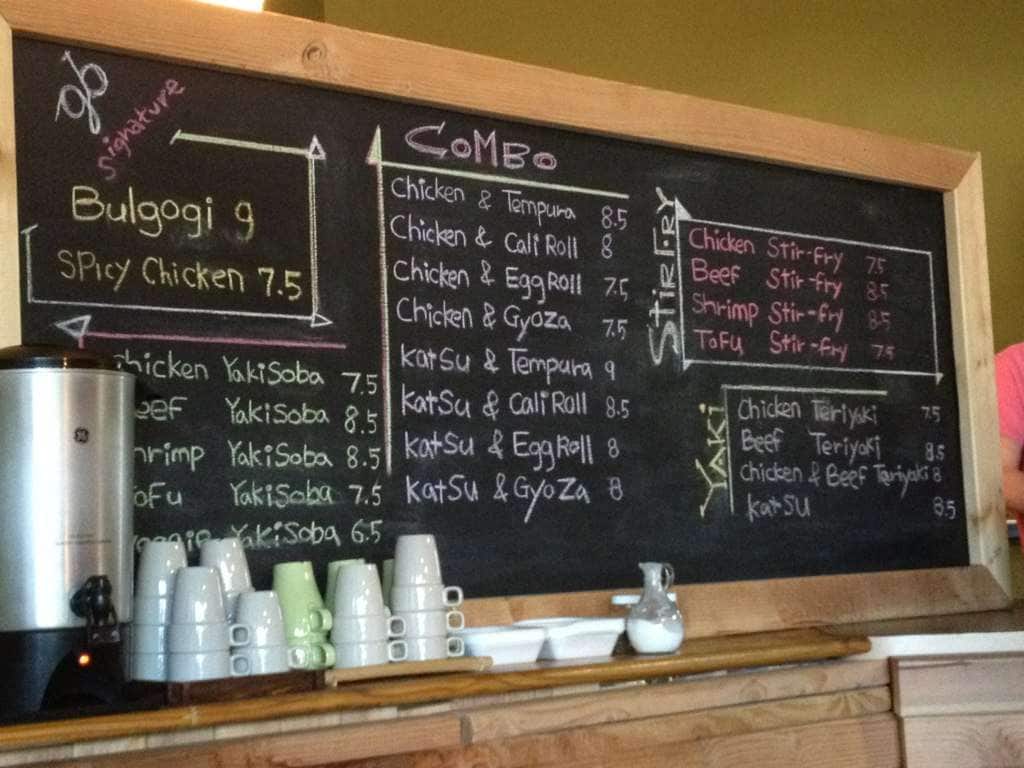 gb
signature
Bulgogi 9
Spicy Chicken 7.5
Chicken YakiSoba 7.5
Beef YakiSoba 8.5
Shrimp YakiSoba 8.5
ToFu YakiSoba 7.5
Veggie YakiSoba 6.5
CoMBO
Chicken & Tempura 8.5
Chicken & Cali Roll 8
Chicken & Egg Roll 7.5
Chicken & Gyoza 7.5
KatSu & Tempura 9
KatSu & Cali Roll 8.5
KatSu & Egg Roll 8
KatSu & GyoZa 8
StiR FRY
Chicken Stir-fry 7.5
Beef Stir-fry 8.5
Shrimp Stir-fry 8.5
ToFu Stir-fry 7.5
YAKi
Chicken Teriyaki 7.5
Beef Teriyaki 8.5
Chicken & Beef Teriyaki 8
KatSU 8.5